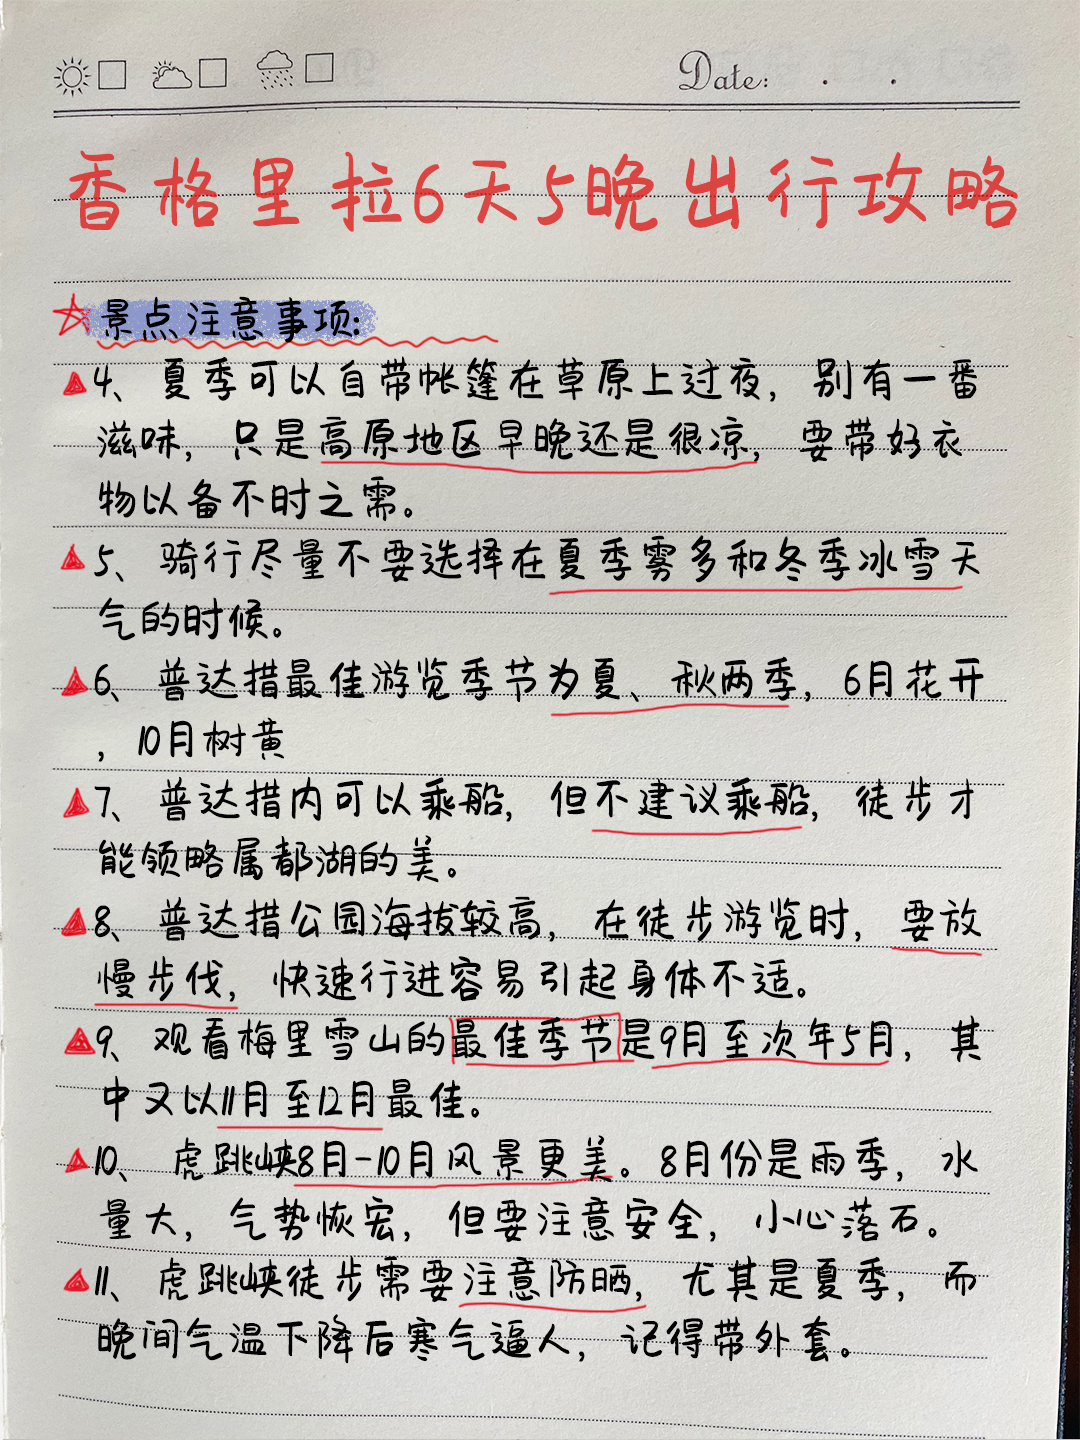 Date:
香格里拉6天5晚出行攻略
景点注意事项:
4、夏季可以自带帐篷在草原上过夜，别有一番
滋味，只是高原地区早晚还是很凉，要带好衣
物以备不时之需。
5、骑行尽量不要选择在夏季雾多和冬季冰雪天
气的时候。
6、普达措最佳游览季节为夏、秋两季，6月花开
，10月树黄
7、普达措内可以乘船，但不建议乘船，徒步才
能领略属都湖的美。
8、普达措公园海拔较高，在徒步游览时，要放
慢步伐，快速行进容易引起身体不适。
9、观看梅里雪山的最佳季节是9月至次年5月，其
中又以11月至12月最佳。
10、虎跳峡8月-10月风景更美。8月份是雨季，水
量大，气势恢宏，但要注意安全，小心落石。
11、虎跳峡徒步需要注意防晒，尤其是夏季，而
晚间气温下降后寒气逼人，记得带外套。